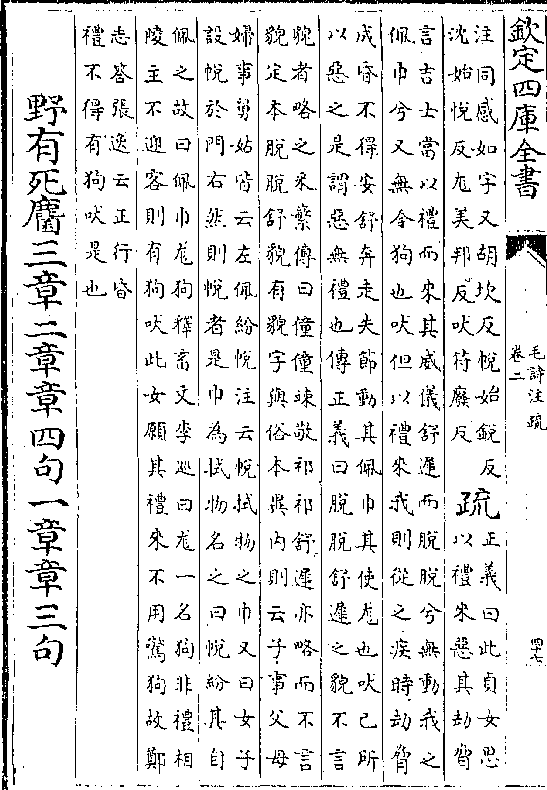 欽定四庫全書
毛詩注疏
卷二
四十七
注同感如字又胡坎反帨始銳反
沈始悅反尨美邦反吠符廢反
疏
正義曰此貞女思
以禮來惡其劫脅
言吉士當以禮而來其威儀舒遲而脫脫兮無動我之
佩巾兮又無令狗也吠但以禮來我則從之疾時劫脅
成昏不得安舒奔走失節動其佩巾其使尨也吠己所
以惡之是謂惡無禮也傳正義曰脫脫舒遲之貌不言
貌者略之采蘩傳曰僮僮竦敬祁祁舒遲亦略而不言
貌定本脫脫舒貌有貌字與俗本異內則云子事父母
婦事舅姑皆云左佩紛帨注云帨拭物之巾又曰女子
設帨於門右然則帨者是巾為拭物名之曰帨紛其自
佩之故曰佩巾尨狗釋畜文李巡曰尨一名狗非禮相
陵主不迎客則有狗吠此女願其禮來不用驚狗故鄭
志答張逸云正行昏
禮不得有狗吠是也
野有死麕三章二章章四句一章章三句